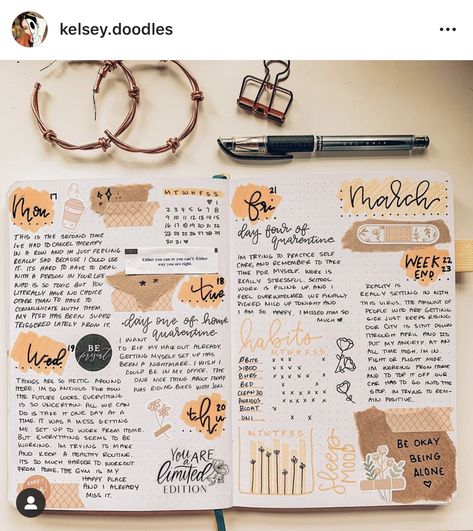 kelsey.doodles
Mon
17
THIS IS THE SECOND TIME
I'VE HAD TO CANCEL THERAPY
IN A ROW AND IM JUST FEELING
REALLY SAD BECAUSE I COULD USE
IT. ITS HARD TO HAVE TO DEAL
WITH A PERSON IN YOUR LIFE
WHO IS TOXIC BUT YOU
LITERALLY HAVE NO CHOICE
OTHER THAN TO HAVE TO
COMMUNICATE WITH THEM.
MY PTSD HAS BEEN SUPER
TRIGGERED LATELY FROM IT.
M T W T F S S
1
2 3 4 5 6 7 8
9 10 11 12 13 14 15
16 17 18 19 20 21 22
23 24 25 26 27 28 29
30 31
Either you can or you can't. Either
way you are right.
Tue
day one of home
quarantine
I WANT
TO RIP MY HAIR OUT ALREADY.
GETTING MYSELF SET UP HAS
BEEN A NIGHTMARE. I WISH I
COULD BE IN MY OFFICE. THE
ONE NICE THING ABOUT TODAY
WAS RIDING BIKES WITH JON.
Wed
19
BE
THINGS ARE SO HECTIC AROUND
HERE. IM SO ANXIOUS FOR HOW
THE FUTURE LOOKS. EVERYTHING
IS SO UNCERTAIN. ALL WE CAN
DO IS TAKE IT ONE DAY AT A
TIME. IT WAS A MESS GETTING
ME SET UP TO WORK FROM HOME.
BUT EVERYTHING SEEMS TO BE
WORKING. IM TRYING TO MAKE
AND KEEP A HEALTHY ROUTINE.
ITS SO MUCH HARDER TO WORKOUT
FROM HOME. THE GYM IS MY
HAPPY PLACE
AND I ALREADY
MISS IT.
Thu
20
YOU ARE A
limited
EDITION
Fri
21
day four of
quarantine
IM TRYING TO PRACTICE SELF
CARE, AND REMEMBER TO TAKE
TIME FOR MYSELF. WORK IS
REALLY STRESSFUL. SCHOOL
WORK IS PILING UP, AND I
FEEL OVERWHELMED. WE FINALLY
PICKED MILO UP TONIGHT AND
I AM SO HAPPY, I MISSED HIM SO
MUCH
March
WEEK
END
22
23
REALITY IS
REALLY SETTING IN WITH
THIS VIRUS. THE AMOUNT OF
PEOPLE WHO ARE GETTING
SICK JUST KEEPS RISING.
OUR CITY IS SHUT DOWN
THROUGH APRIL AND ITS
PUT MY ANXIETY AT AN
ALL TIME HIGH. IM IN
FIGHT OR FLIGHT MODE.
IM WORKING FROM HOME
AND TO TOP IT OFF OUR
CAR HAS TO GO INTO THE
SHOP. IM TRYING TO REMAIN
POSITIVE.
habits
M T W T F S S
BED
ANXIOUS
BLOAT
M T W T F S S
sleep
MOOD
BE OKAY
BEING
ALONE